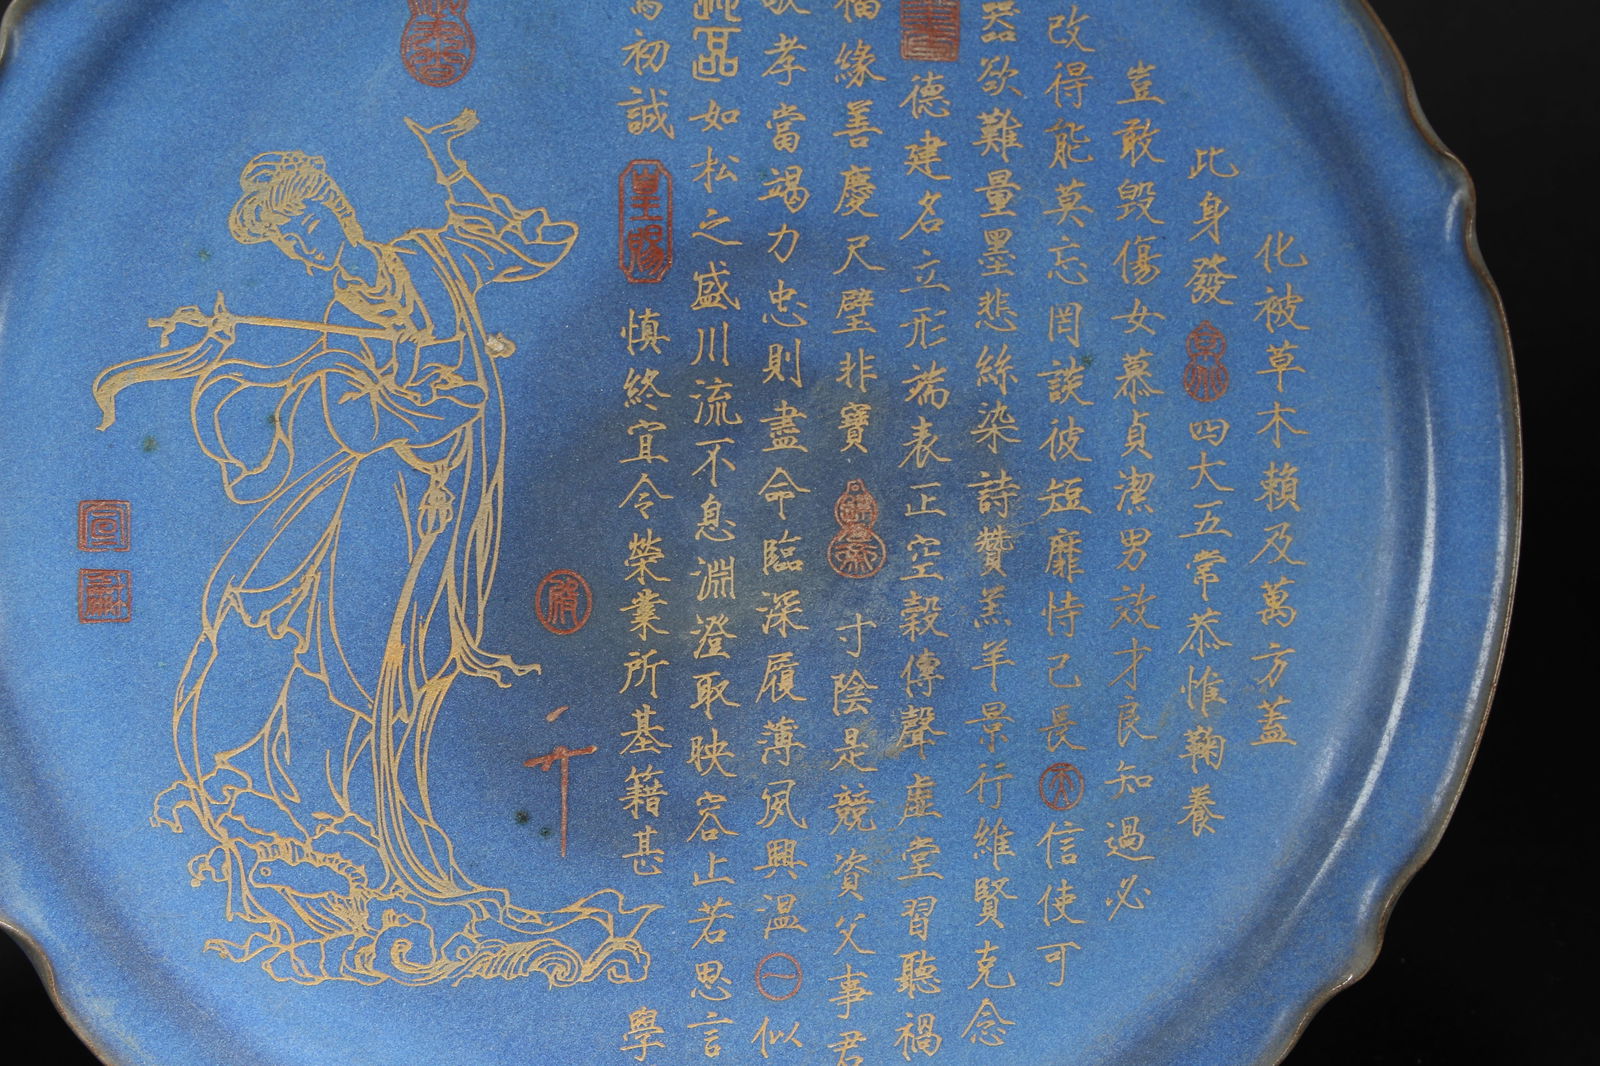 化被草木賴及萬方蓋
此身發
四大五常恭惟鞠養
豈敢毀傷女慕貞潔男效才良知過必
改得能莫忘罔談彼短靡恃己長
信使可
器欲難量墨悲絲染詩贊羔羊景行維賢克念
德建名立形端表正空穀傳聲虛堂習聽禍
福緣善慶尺璧非寶
寸陰是競資父事君
孝當竭力忠則盡命臨深履薄夙興溫
一
似
如松之盛川流不息淵澄取映容止若思言
初誠
皇賜
慎終宜令榮業所基籍甚
學